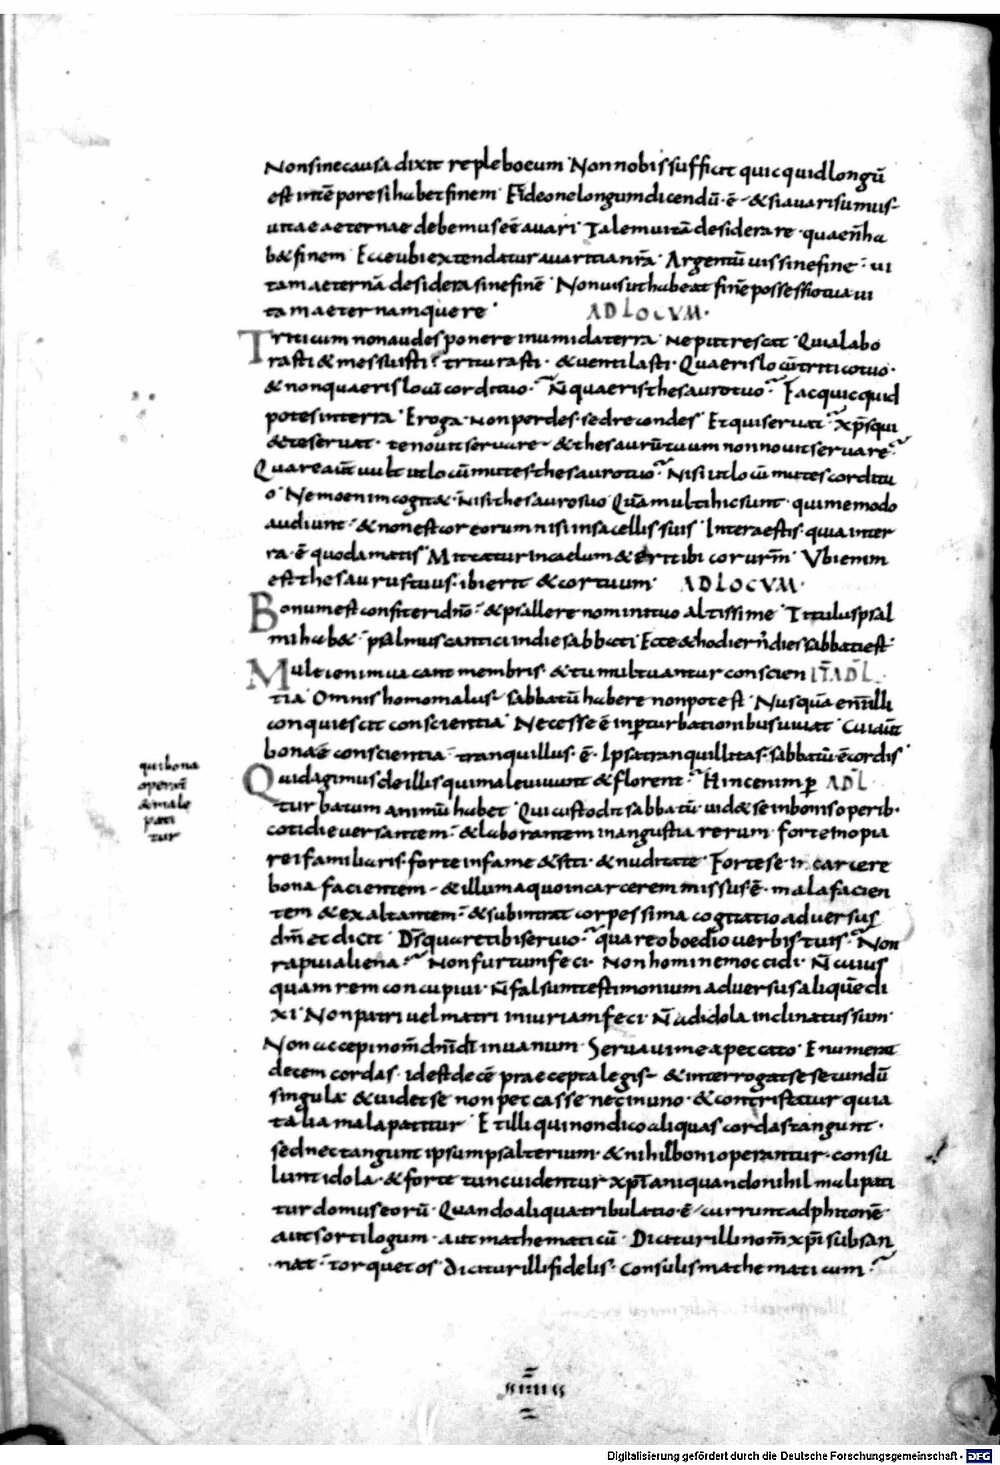 Non sine causa dixit repleboeum Non nobis sufficit quicquid longū
est intēpore si habet finem Et̄ ideo ne longum dicendū ē & si avari sumus
vitae aeternae debemus eē avari Talem vitā desiderare quaen̄ ha
b& finem Ecce ubi extendatur avaritia nr̄a Argentū vis sine fine vi
tam aeternā desidera sine fine Non vis ut habeat finē possessio tua vi
tam aeternam quere AD LOCVM
Triticum non audes ponere in umida terra ne putrescat Quia labo
rasti & messuisti triturasti & ventilasti Quaeris locū tritico tuo
& non quaeris locū cordi tuo N̄ quaeris thesauro tuo Fac quicquid
potes in terra Eroga non perdes sed recondes Et qui servat xp̄s qui
& te servat te novit servare & thesaurū tuum non novit servare
Quare aūt vult ut locū mutes thesauro tuo Nisi ut locū mutes cordi tu
o Nemo enim cogit& nisi thesauro suo Quā multi hic sunt qui me modo
audiunt & non est cor eorum nisi in sacellis suis In terra estis quia in ter
ra ē quod amatis Mittatur in caelum & erit ibi cor urm̄ Vbi enim
est thesaurus tuus ibi erit & cor tuum AD LOCVM
Bonum est confiteri dn̄o & psallere nomini tuo altissime Titulus psal
mi hab& psalmus cantici in die sabbati Ecce & hodiern̄ dies sabbati est
Multi enim vacant membris & tumultuantur conscien IT̄ AD L
tia Omnis homo malus sabbatū habere non potest Nusquā enī illi
conquiescit conscientia Necesse ē in perturbationibus vivat Cui aūt
bona ē conscientia tranquillus ē Ipsa tranquillitas sabbatū ē cordis
Quid agimus de illis qui male vivunt & florent Hinc enim per AD L
turbatum animū habet Qui custodit sabbatū vid& se in bonis operib
cotidie versantem & laborantem in angustia rerum forte inopia
rei familiaris forte in fame & siti & nuditate Forte se in carcere
bona facientem & illum a quo in carcerem missus ē mala facien
tem & exaltantem & subintrat cor pessima cogitatio adversus
dm̄ et dicit Ds̄ quare tibi servio quare oboedio verbis tuis Non
rapui aliena Non furtum feci Non hominem occidi N̄ cuius
quam rem concupivi n̄ falsum testimonium adversus aliquē di
xi Non patri vel matri iniuriam feci N̄ ad idola inclinatus sum
Non accepi nom̄ dn̄i dī in vanum Servavi me a peccato Enumerat
decem cordas id est decē praecepta legis & interrogat se secundū
singula & videt se non peccasse nec in uno & contristatur quia
talia mala patitur Et illi qui non dico aliquas cordas tangunt
sed nec tangunt ipsum psalterium & nihil boni operantur consu
lunt idola & forte tunc videntur xp̄iani quando nihil mali pati
tur domus eorū Quando aliqua tribulatio ē currunt ad phitonē
aut sortilogum aut mathematicū Dicitur illi nom̄ xp̄i subsan
nat torquet os Dicitur illi fidelis consulis mathematicum
qui bona
operant̄
& male
pati
tur